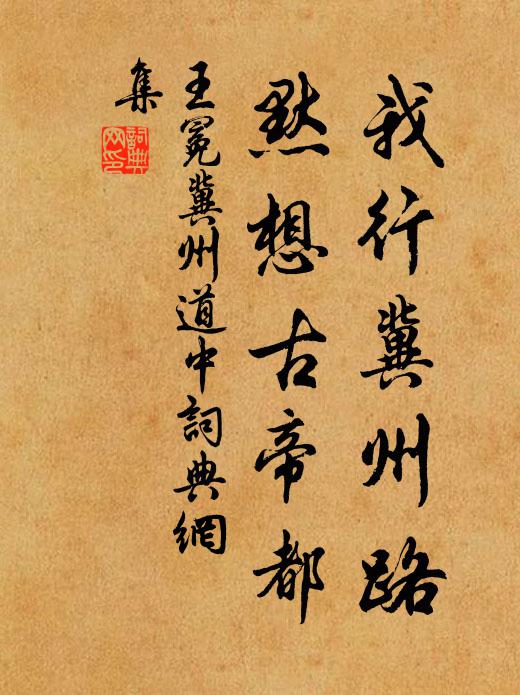 我行冀州路
默想古帝都
王冕冀州道中詞典網
集
詞典
网印